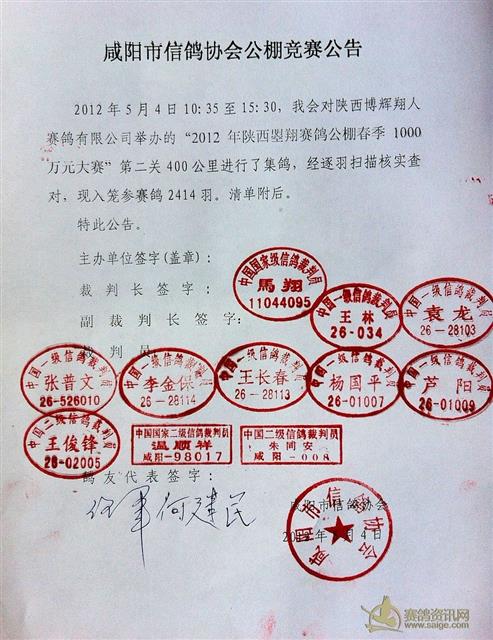 咸阳市信鸽协会公棚竞赛公告
2012年5月4日10:35至15:30，我会对陕西博辉翔人
赛鸽有限公司举办的“2012年陕西曌翔赛鸽公棚春季1000
万元大赛”第二关400公里进行了集鸽，经逐羽扫描核实查
对，现入笼参赛鸽2414羽。清单附后。
特此公告。
主办单位签字(盖章)：
裁判长签字：
中国国家级信鸽裁判员
馬翔
11044095
副裁判长签字：
中国一级信鸽裁判员
王林
26-034
中国一级信鸽裁判员
袁龙
26-28103
裁判员
中国一级信鸽裁判员
张普文
26-526010
中国一级信鸽裁判员
李金保
26-28114
中国一级信鸽裁判员
王长春
26-28113
中国一级信鸽裁判员
杨国平
26-01007
中国一级信鸽裁判员
芦阳
26-01009
中国二级信鸽裁判员
王俊锋
26-02005
中国国家二级信鸽裁判员
温顺祥
咸阳-98017
中国二级信鸽裁判员
朱同安
咸阳-008
鸽友代表签字：
何建民
咸阳市信鸽协会
咸阳市信鸽协会
月4日
赛鸽资讯网
www.saige.com